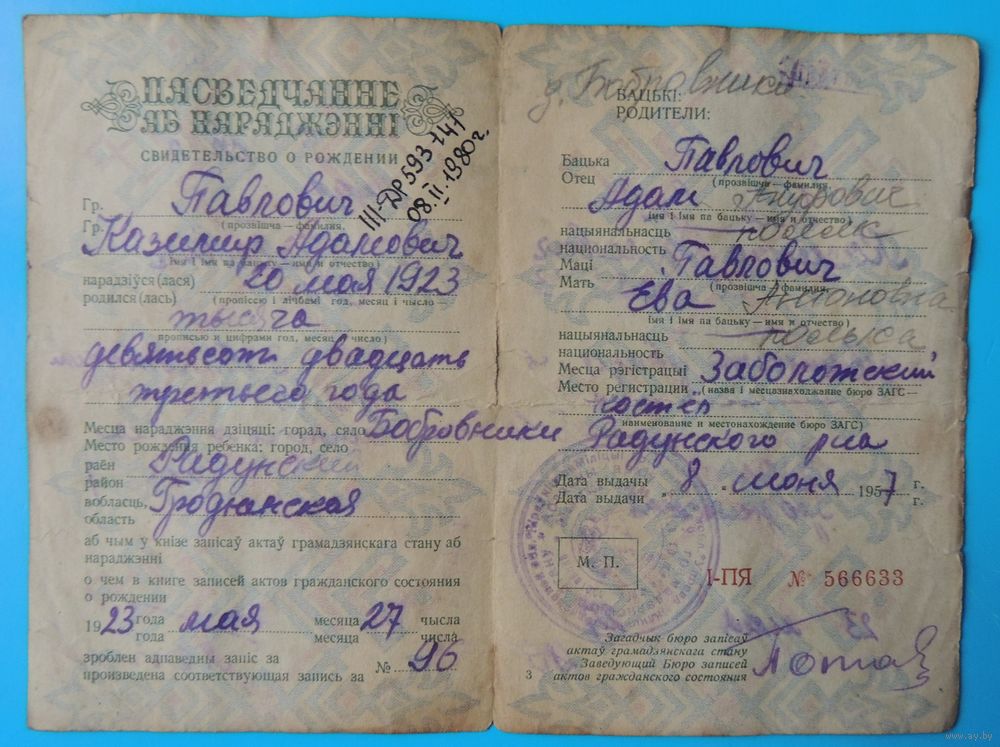 ПАСВЕДЧАННЕ
АБ НАРАДЖЭННІ
СВИДЕТЕЛЬСТВО О РОЖДЕНИИ
III-ДР 593741
08.II.1980г.
Гр. Павлович
Гр. (прозвішча — фамилия,
Казимир Адамович
імя і імя па бацьку — имя и отчество)
нарадзіўся(лася) 20 мая 1923
родился(лась) (пропіссю і лічбамі год, месяц і чысло
тысяча
прописью и цифрами год, месяц и число)
девятьсот двадцать
третьего года
Месца нараджэння дзіцяці: горад, сяло Бобровники
Место рождения ребенка: город, село
раён Радунский
район
вобласць Гродненская
область
аб чым у кнізе запісаў актаў грамадзянскага стану аб
нараджэнні
о чем в книге записей актов гражданского состояния
о рождении
1923 года мая месяца 27 чысла
года месяца числа
зроблен адпаведны запіс за № 96
произведена соответствующая запись за
д. Бобровники
БАЦЬКІ:
РОДИТЕЛИ:
Бацька Павлович
Отец (прозвішча — фамилия,
Адам
імя і імя па бацьку — имя и отчество)
нацыянальнасць поляк
национальность
Маці Павлович
Мать (прозвішча — фамилия,
Ева Антоновна
імя і імя па бацьку — имя и отчество)
нацыянальнасць полька
национальность
Месца рэгістрацыі Заболотский
Место регистрации (назва і месцазнаходжанне бюро ЗАГС —
костёл
наименование и местонахождение бюро ЗАГС)
Радунского р-на
Дата выдачы „8 „ июня 1957 г.
Дата выдачи г.
М. П.
І-ПЯ № 566633
Загадчык бюро запісаў
актаў грамадзянскага стану
Заведующий Бюро записей
актов гражданского состояния
3
www.ay.by